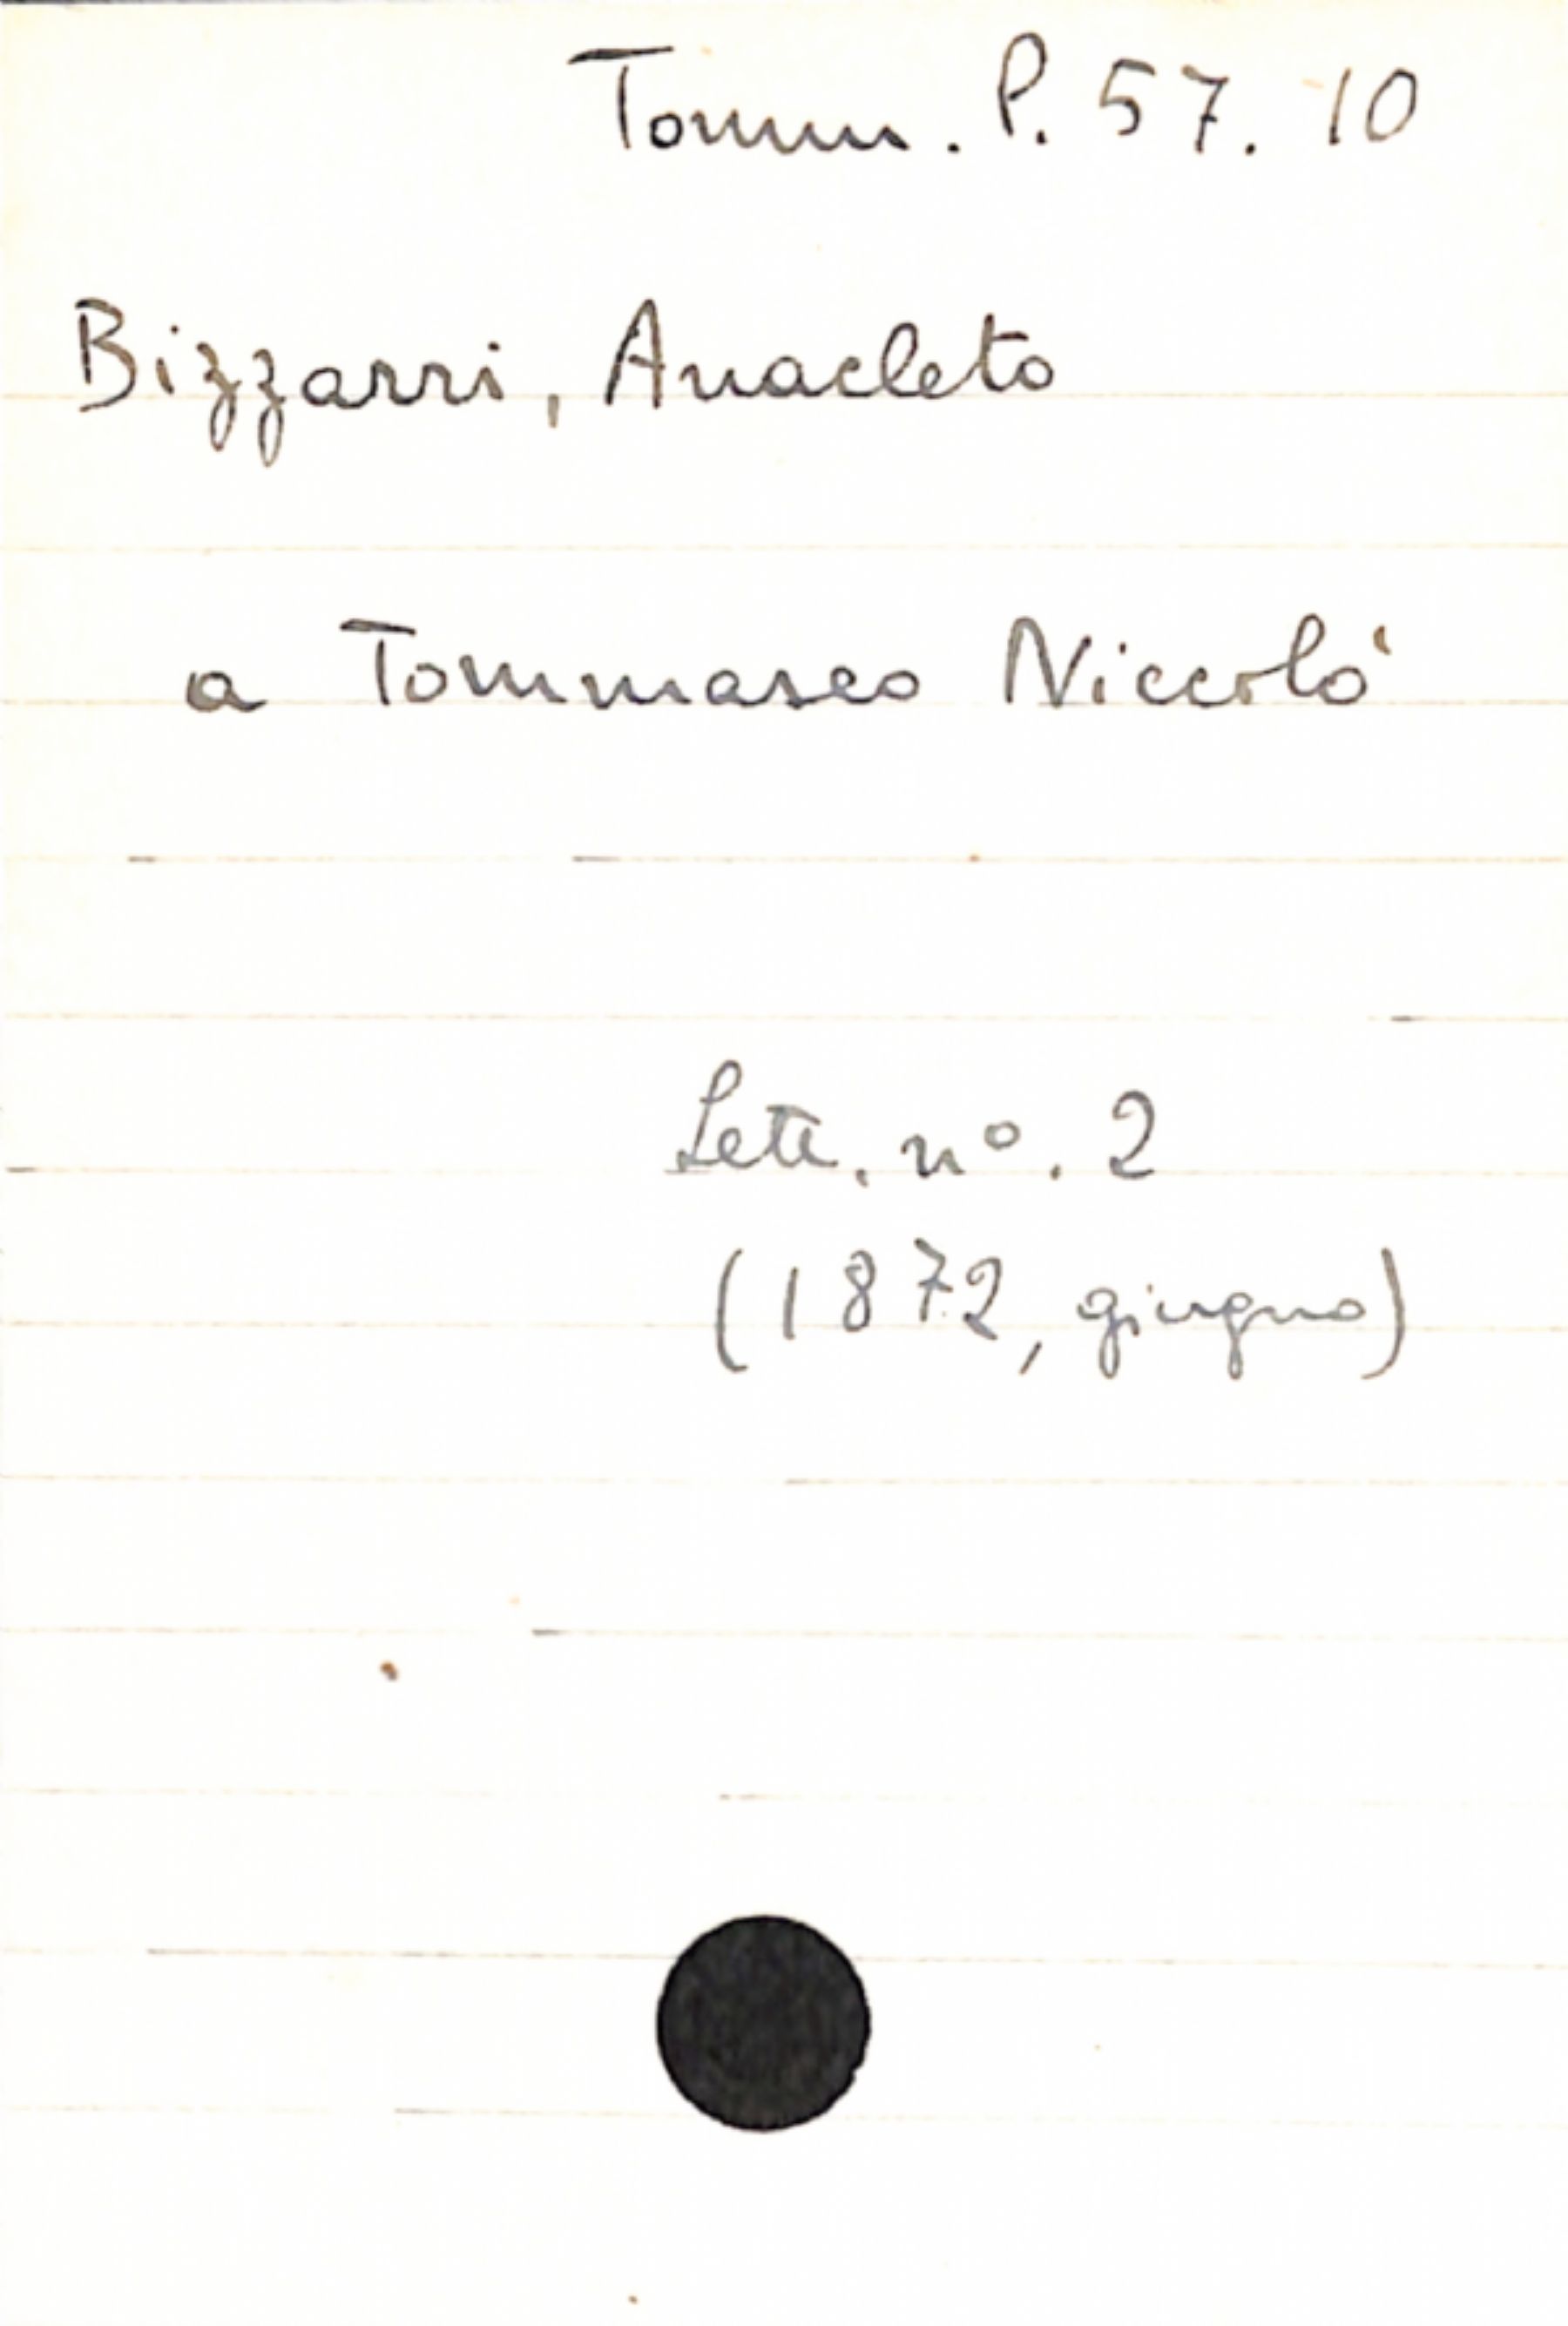 Tomm. P. 57. 10
Bizzarri, Anacleto
a Tommaseo Niccolò
Lett. nº. 2
(1872, giugno)